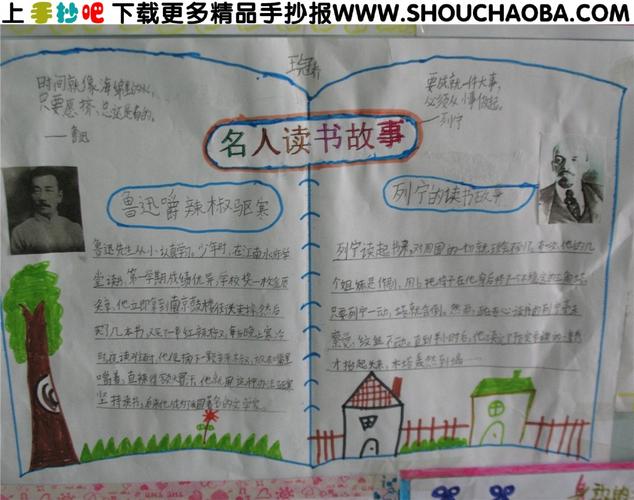 上 手抄吧 下载更多精品手抄报WWW.SHOUCHAOBA.COM
时间就像海绵里的水,
只要愿挤,总还是有的。
——鲁迅
要成就一件大事,
必须从小事做起。
——列宁
名人读书故事
鲁迅嚼辣椒驱寒
鲁迅先生从小认真学习。少年时,在江南水师学
堂读书,第一学期成绩优异,学校奖一枚金质
奖章。他立即拿到南京鼓楼街头卖掉,然后
买了几本书,又买了一串红辣椒。每当晚上寒冷
时,夜读难耐,他便摘下一颗辣椒,放在嘴里
嚼着,直辣得额头冒汗。他就用这种办法驱寒
坚持读书,后来他成为我国著名的文学家。
列宁的读书故事
列宁读起书来,对周围的一切就
个姐妹
只要列宁一动,墙就会倒。然而,
察觉,纹丝不动。直到半小时后,他读完了预定
才抬起头来,木塔轰然到塌……